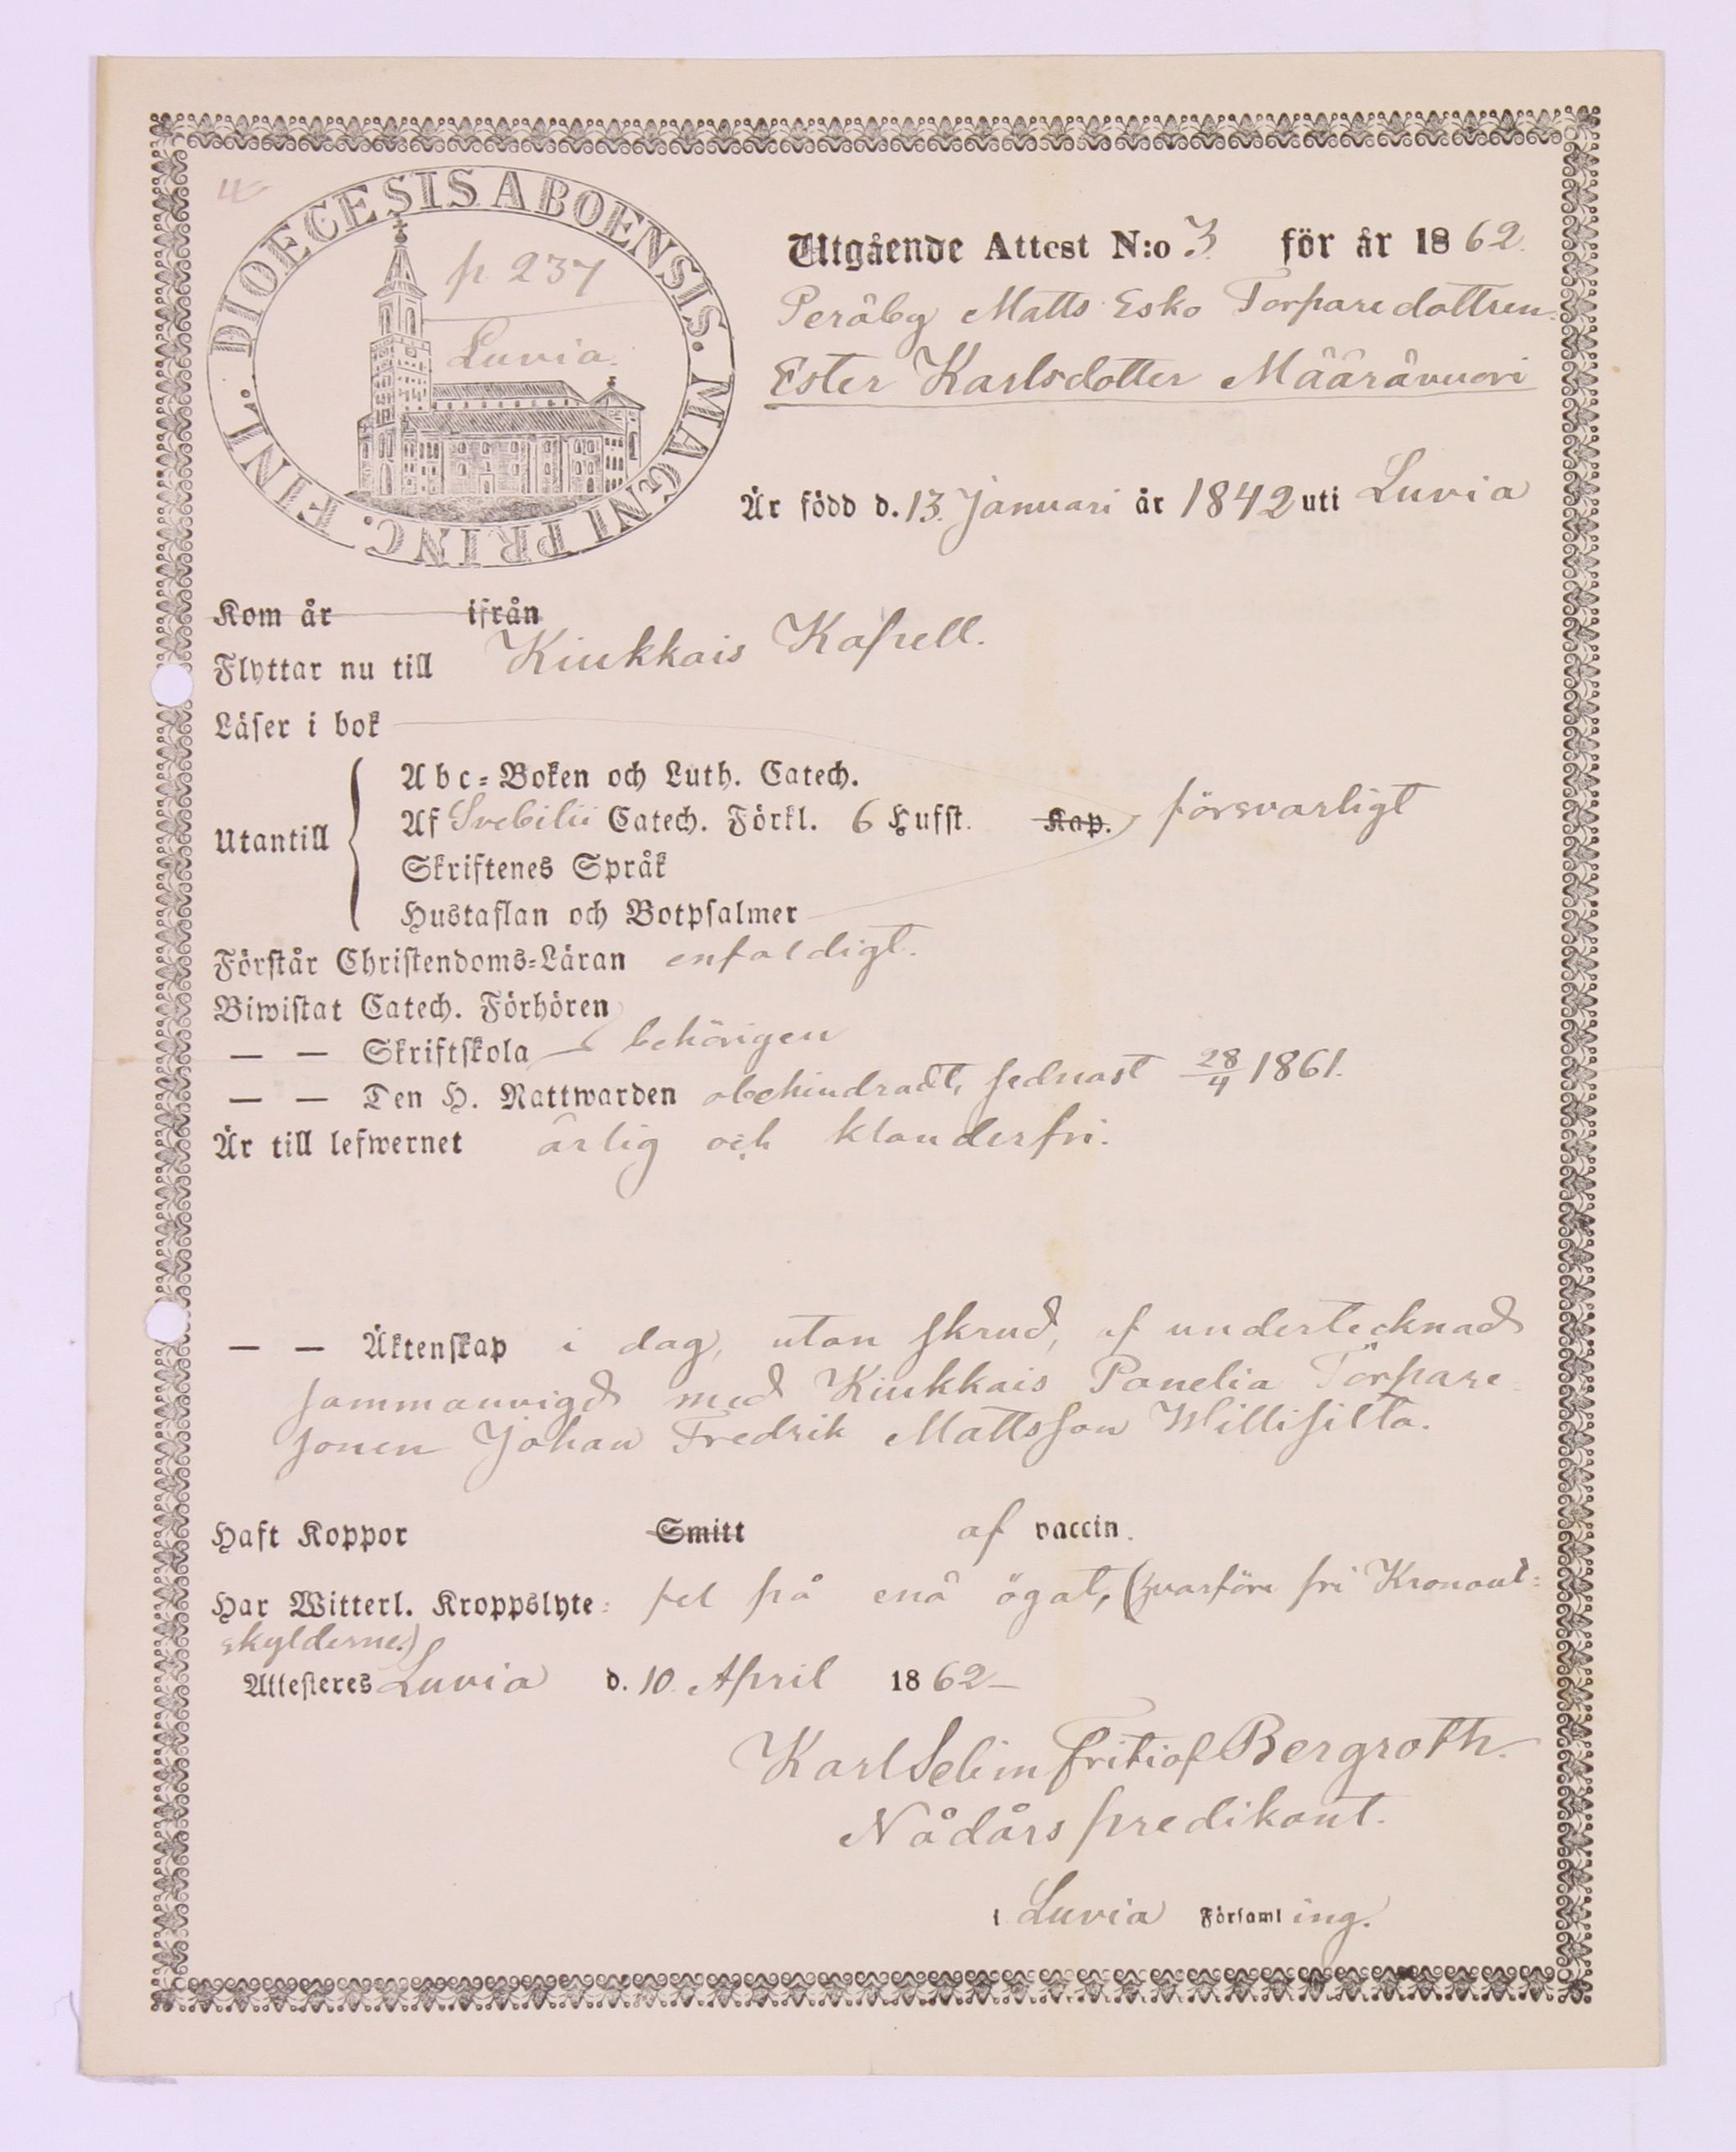 DIOECESIS ABOENSIS. MAGNI PRINC. FINL.
p. 237
Luvia.
Utgående Attest N:o 3. för år 1862.
Peräby Matts Esko Torparedottren
Ester Karlsdotter Määrävuori
Är född d. 13. Januari år 1842 uti Luvia
Kom år ifrån
Flyttar nu till Kiukkais Kapell.
Läser i bok
Utantill
Abc-Boken och Luth. Catech.
Af Svebilii Catech. Förkl. 6 Hufst. Kap. försvarligt
Skriftenes Språk
Hustaflan och Botpsalmer
Förstår Christendoms-Läran enfaldigt.
Biwistat Catech. Förhören
— — Skriftskola behörigen
— — Den H. Nattwarden obehindradt, sednast 28/4 1861.
Är till lefwernet ärlig och klanderfri.
— — Äktenskap i dag, utan skrud, af undertecknad
sammanvigd med Kiukkais Panelia Torpare-
sonen Johan Fredrik Mattsson Willisilta.
Haft Koppor Smitt af vaccin.
Har Witterl. Kroppslyte: fel på enä ögat, (hvarföre fri Kronout-
skylderne.)
Attesteres Luvia d. 10. April 1862
Karl Selim Fritiof Bergroth.
Nådårspredikant.
i Luvia Församling.